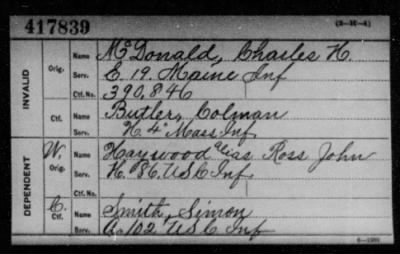 417839
(3-W-4)
INVALID
Orig. Name McDonald, Charles H.
Serv. E. 19. Maine Inf
Ctf. No. 390,846
Ctf. Name Butler, Colman
Serv. H. 4" Mass Inf.
DEPENDENT
W. Orig. Name Haywood alias Ross John
Serv. H. 86. U S C Inf.
C. Ctf. Name Smith, Simon
Serv. A. 102" U S C Inf